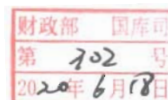 财政部 国库司
第 302 号
2020年6月18